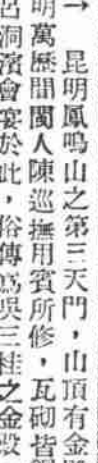 →　昆明鳳鳴山之第三天門，山頂有金殿
明萬歷間閩人陳巡撫用賓所修，瓦砌皆
呂洞濱會宴於此，俗傳爲吳三桂之金殿